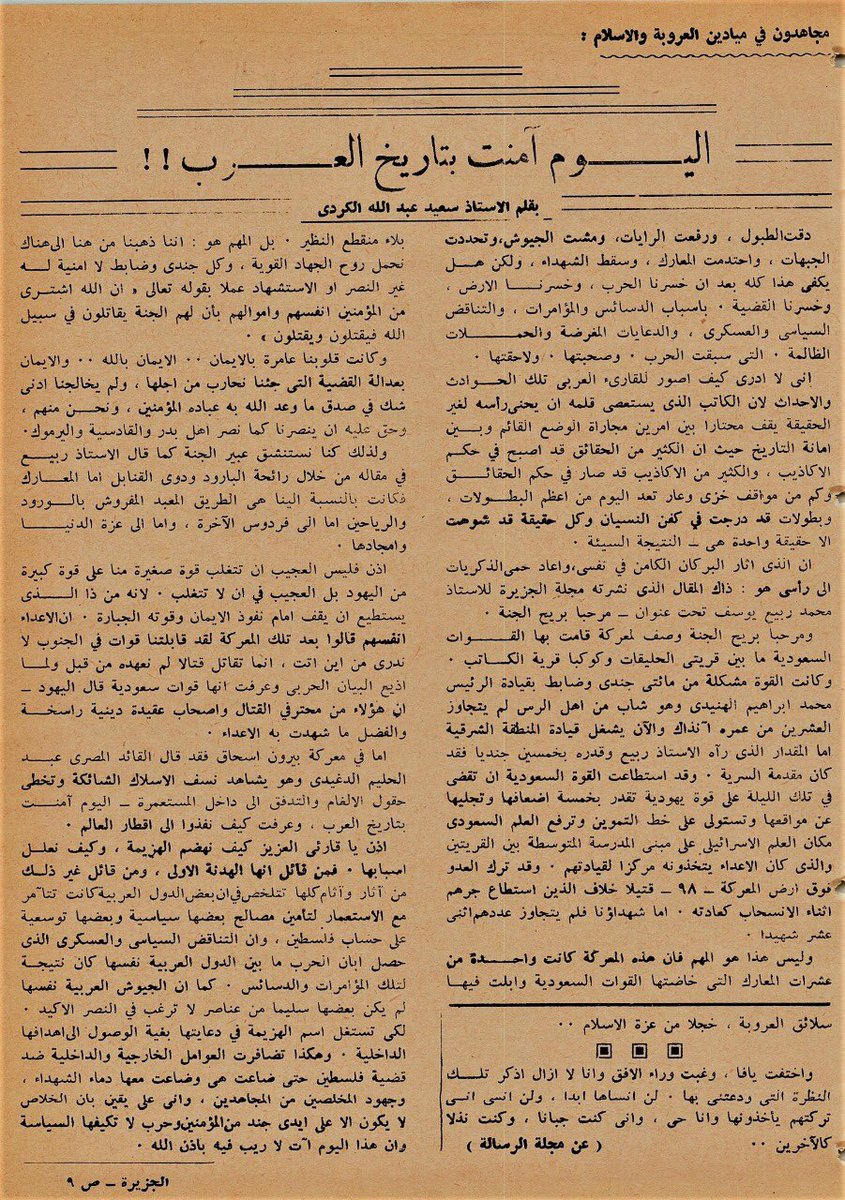 مجاهدون في ميادين العروبة والاسلام :
اليـــوم آمنت بتاريخ العـــرب !!
بقلم الاستاذ سعيد عبد الله الكردى
دقت الطبول ، ورفعت الرايات، ومشت الجيوش،وتحددت
الجبهات ، واحتدمت المعارك ، وسقط الشهداء ، ولكن هــل
يكفى هذا كله بعد ان خسرنا الحرب ، وخسرنــا الارض ،
وخسرنا القضية ٠ باسباب الدسائس والمؤامرات ، والتناقض
السياسى والعسكرى ، والدعايات المغرضة والحمــلات
الظالمة ٠ التى سبقت الحرب ٠ وصحبتها ٠ ولاحقتها ٠
انى لا ادرى كيف اصور للقارىء العربى تلك الحــوادث
والاحداث لان الكاتب الذى يستعصى قلمه ان يحنى رأسه لغير
الحقيقة يقف محتارا بين امرين مجاراة الوضع القائم وبــين
امانة التاريخ حيث ان الكثير من الحقائق قد اصبح في حكم
الاكاذيب ، والكثير من الاكاذيب قد صار في حكم الحقائــق
وكم من مواقف خزى وعار تعد اليوم من اعظم البطــولات ،
وبطولات قد درجت في كفن النسيان وكل حقيقة قد شوهت
الا حقيقة واحدة هى ــ النتيجة السيئة ٠
ان الذى اثار البركان الكامن في نفسى،واعاد حمى الذكريات
الى رأسى هو : ذاك المقال الذى نشرته مجلة الجزيرة للاستاذ
محمد ربيع يوسف تحت عنوان ــ مرحبا بريح الجنة ٠
ومرحبا بريح الجنة وصف لمعركة قامت بها القــوات
السعودية ما بين قريتى الحليقات وكوكبا قرية الكــاتب ٠
وكانت القوة مشكلة من مائتى جندى وضابط بقيادة الرئيس
محمد ابراهيم الهنيدى وهو شاب من اهل الرس لم يتجاوز
العشرين من عمره آنذاك والآن يشغل قيادة المنطقة الشرقية
اما المقدار الذى رآه الاستاذ ربيع وقدره بخمسين جنديا فقد
كان مقدمة السرية ٠ وقد استطاعت القوة السعودية ان تقضى
في تلك الليلة على قوة يهودية تقدر بخمسة اضعافها وتجليها
عن مواقعها وتستولى على خط التموين وترفع العلم السعودى
مكان العلم الاسرائيلى على مبنى المدرسة المتوسطة بين القريتين
والذى كان الاعداء يتخذونه مركزا لقيادتهم ٠ وقد ترك العدو
فوق ارض المعركة ــ ٩٨ ــ قتيلا خلاف الذين استطاع جرهم
اثناء الانسحاب كعادته ٠ اما شهداؤنا فلم يتجاوز عددهم اثنى
عشر شهيدا ٠
وليس هذا هو المهم فان هذه المعركة كانت واحــدة من
عشرات المعارك التى خاضتها القوات السعودية وابلت فيهــا
بلاء منقطع النظير ٠ بل المهم هو : اننا ذهبنا من هنا الى هناك
نحمل روح الجهاد القوية ، وكل جندى وضابط لا امنية لــه
غير النصر او الاستشهاد عملا بقوله تعالى « ان الله اشتــرى
من المؤمنين انفسهم واموالهم بأن لهم الجنة يقاتلون في سبيل
الله فيقتلون ويقتلون » ٠
وكانت قلوبنا عامرة بالايمان ٠٠ الايمان بالله ٠٠ والايمان
بعدالة القضية التى جئنا نحارب من اجلها ، ولم يخالجنا ادنى
شك في صدق ما وعد الله به عباده المؤمنين ، ونحــن منهم ،
وحق عليه ان ينصرنا كما نصر اهل بدر والقادسية واليرموك٠
ولذلك كنا نستنشق عبير الجنة كما قال الاستاذ ربيــع
في مقاله من خلال رائحة البارود ودوى القنابل اما المعــارك
فكانت بالنسبة الينا هى الطريق المعبد المفروش بالــورود
والرياحين اما الى فردوس الآخرة ، واما الى عزة الدنيــا
وامجادها ٠
اذن فليس العجيب ان تتغلب قوة صغيرة منا على قوة كبيرة
من اليهود بل العجيب في ان لا تتغلب ٠ لانه من ذا الــذى
يستطيع ان يقف امام نفوذ الايمان وقوته الجبارة ٠ ان الاعداء
انفسهم قالوا بعد تلك المعركة لقد قابلتنا قوات في الجنوب لا
ندرى من اين اتت ، انما تقاتل قتالا لم نعهده من قبل ولمــا
اذيع البيان الحربى وعرفت انها قوات سعودية قال اليهود ــ
ان هؤلاء من محترفي القتال واصحاب عقيدة دينية راسخــة
والفضل ما شهدت به الاعداء ٠
اما في معركة بيرون اسحاق فقد قال القائد المصرى عبــد
الحليم الدغيدى وهو يشاهد نسف الاسلاك الشائكة وتخطى
حقول الالغام والتدفق الى داخل المستعمرة ــ اليوم آمنــت
بتاريخ العرب ، وعرفت كيف نفذوا الى اقطار العالم ٠
اذن يا قارئى العزيز كيف نهضم الهزيمة ، وكيف نعلــل
اسبابها ٠ فمن قائل انها الهدنة الاولى ، ومن قائل غير ذلــك
من آثار وآثام كلها تتلخص في ان بعض الدول العربية كانت تتآمر
مع الاستعمار لتأمين مصالح بعضها سياسية وبعضها توسعية
على حساب فلسطين ، وان التناقض السياسى والعسكرى الذى
حصل ابان الحرب ما بين الدول العربية نفسها كان نتيجــة
لتلك المؤامرات والدسائس ٠ كما ان الجيوش العربية نفسها
لم يكن بعضها سليما من عناصر لا ترغب في النصر الاكيد ٠
لكى تستغل اسم الهزيمة في دعايتها بغية الوصول الى اهدافها
الداخلية ٠ وهكذا تضافرت العوامل الخارجية والداخلية ضد
قضية فلسطين حتى ضاعت هى وضاعت معها دماء الشهداء ،
وجهود المخلصين من المجاهدين ، وانى على يقين بان الخلاص
لا يكون الا على ايدى جند من المؤمنين وحرب لا تكيفها السياسة
وان هذا اليوم آت لا ريب فيه باذن الله ٠
سلائق العروبة ، خجلا من عزة الاسلام ٠٠
واختفت يافا ، وغبت وراء الافق وانا لا ازال اذكر تلــك
النظرة التى ودعتنى بها ٠ لن انساها ابدا ، ولن انسى انــى
تركتهم يأخذونها وانا حى ، وانى كنت جبانا ، وكنت نذلا
كالآخرين ٠٠ ( عن مجلة الرسالة )
الجزيرة ــ ص ٩